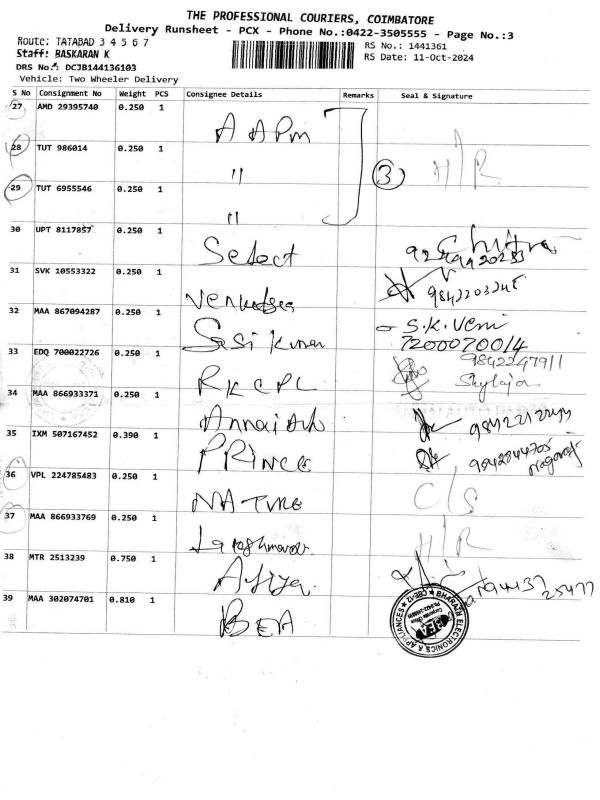 THE PROFESSIONAL COURIERS, COIMBATORE
Delivery Runsheet - PCX - Phone No.:0422-3505555 - Page No.:3
Route: TATABAD 3 4 5 6 7
RS No.: 1441361
Staff: BASKARAN K
RS Date: 11-Oct-2024
DRS No.: DCJB144136103
Vehicle: Two Wheeler Delivery
S No Consignment No Weight PCS Consignee Details Remarks Seal & Signature
27 AMD 29395740 0.250 1 AAPM
28 TUT 986014 0.250 1 " 3 H/R
29 TUT 6955546 0.250 1 "
30 UPT 8117857 0.250 1 Select Chitra
31 SVK 10553322 0.250 1 9842203245
32 MAA 867094287 0.250 1 Sasi Kumar S.K. Veni
7200070014
33 EDQ 700022726 0.250 1 RKCPL 9842247911
Shylaja
34 MAA 866933371 0.250 1
35 IXM 507167452 0.390 1 PRINCE 9842844705
Nagaraj
36 VPL 224785483 0.250 1 NATURE C/S
37 MAA 866933769 0.250 1 H/R
38 MTR 2513239 0.750 1
39 MAA 302074701 0.810 1 BEA
BHARATH ELECTRONICS & APPLIANCES
CBE-12
BEA